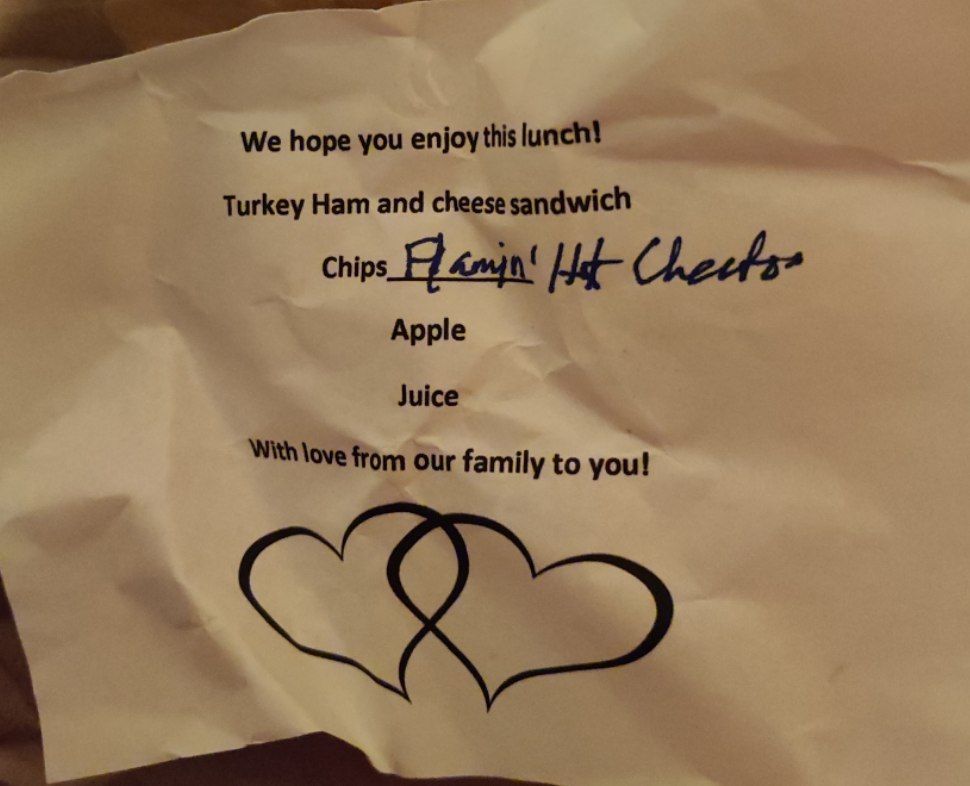 We hope you enjoy this lunch!
Turkey Ham and cheese sandwich
Chips Flamin' Hot Cheetos
Apple
Juice
With love from our family to you!